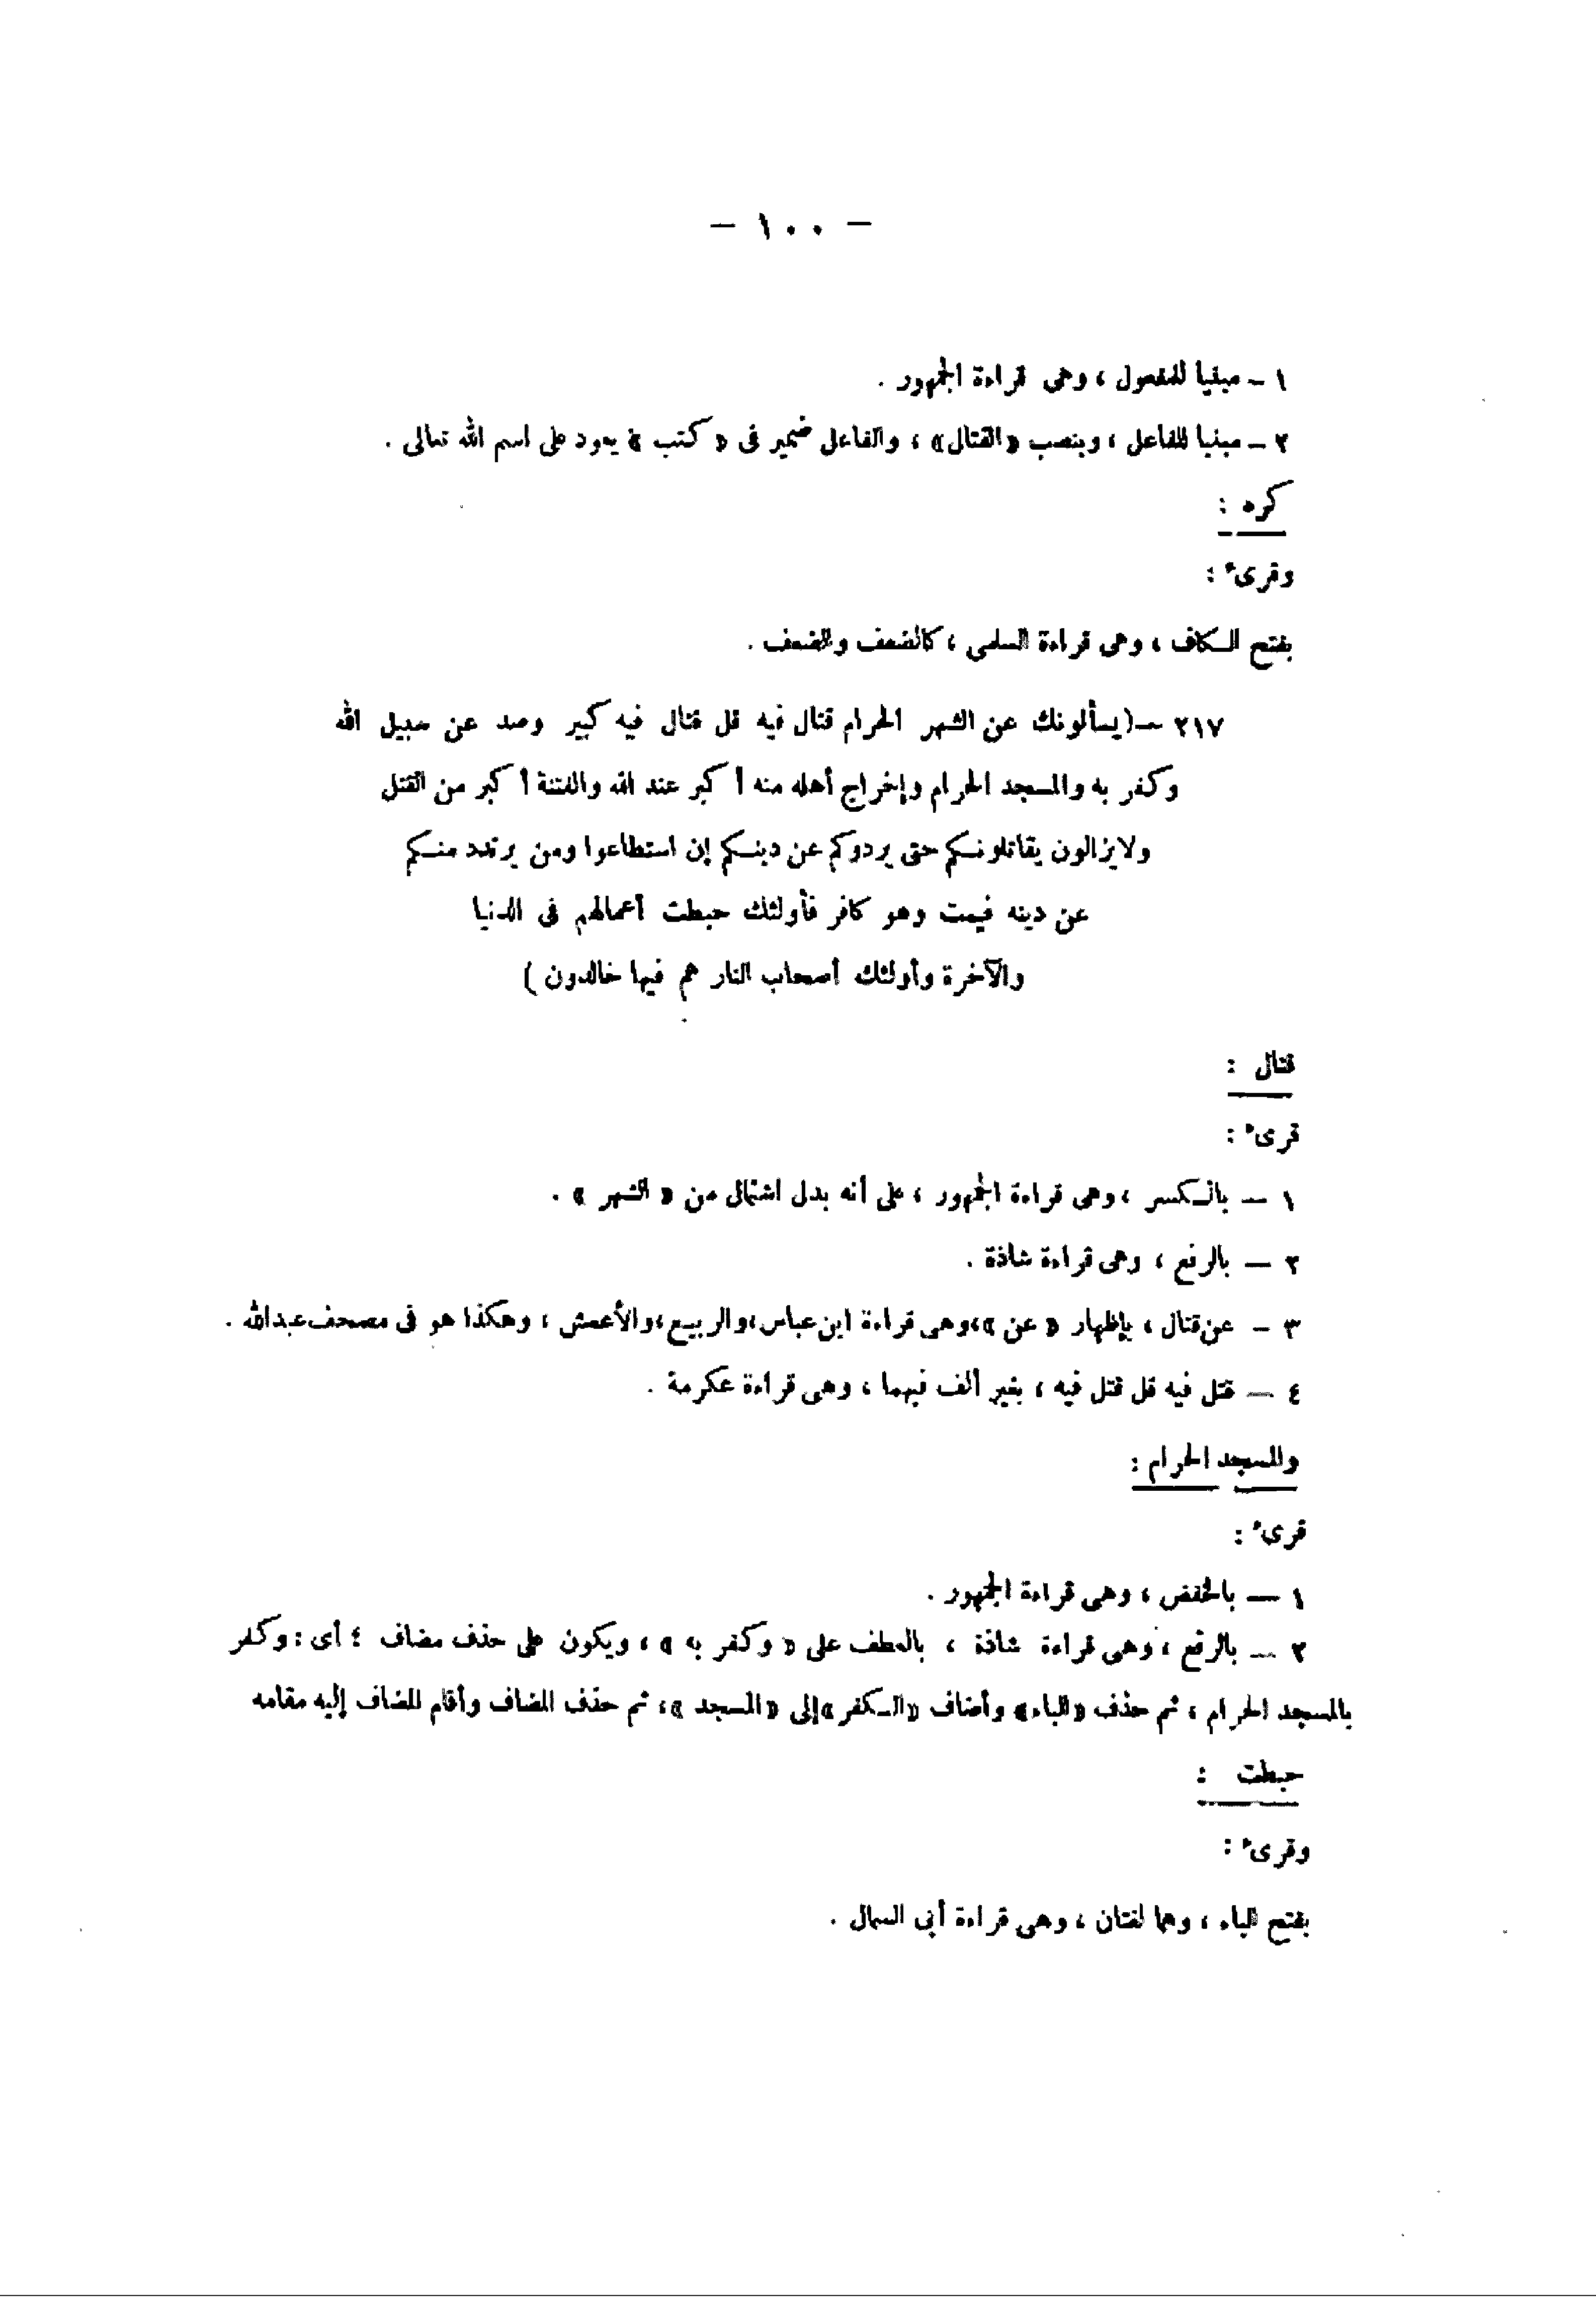 — ١٠٠ —
١ – مبنيا للمفعول ، وهى قراءة الجمهور .
٢ – مبنيا للفاعل ، وبنصب «القتال» ، والفاعل ضمير فى « كتب » يعود على اسم الله تعالى .
كره :
وقرىء :
بفتح الكاف ، وهى قراءة السلمى ، كالضعف والضعف .
٢١٧ – (يسألونك عن الشهر الحرام قتال فيه قل قتال فيه كبير وصد عن سبيل الله
وكفر به والمسجد الحرام وإخراج أهله منه أكبر عند الله والفتنة أكبر من القتل
ولايزالون يقاتلونكم حتى يردوكم عن دينكم إن استطاعوا ومن يرتدد منكم
عن دينه فيمت وهو كافر فأولئك حبطت أعمالهم فى الدنيا
والآخرة وأولئك أصحاب النار هم فيها خالدون )
قتال :
قرىء :
١ — بالكسر ، وهى قراءة الجمهور ، على أنه بدل اشتمال من « الشهر » .
٢ — بالرفع ، وهى قراءة شاذة .
٣ – عن قتال ، بإظهار « عن »، وهى قراءة ابن عباس، والربيع، والأعمش ، وهكذا هو فى مصحف عبد الله .
٤ — قتل فيه قل قتل فيه ، بغير ألف فيهما ، وهى قراءة عكرمة .
والمسجد الحرام :
قرىء :
١ — بالخفض ، وهى قراءة الجمهور .
٢ — بالرفع ، وهى قراءة شاذة ، بالعطف على « وكفر به » ، ويكون على حذف مضاف ؛ أى : وكفر
بالمسجد الحرام ، ثم حذف «الباء» وأضاف «الكفر» إلى «المسجد »، ثم حذف المضاف وأقام المضاف إليه مقامه
حبطت :
وقرىء :
بفتح الباء ، وهما لغتان ، وهى قراءة أبى السمال .